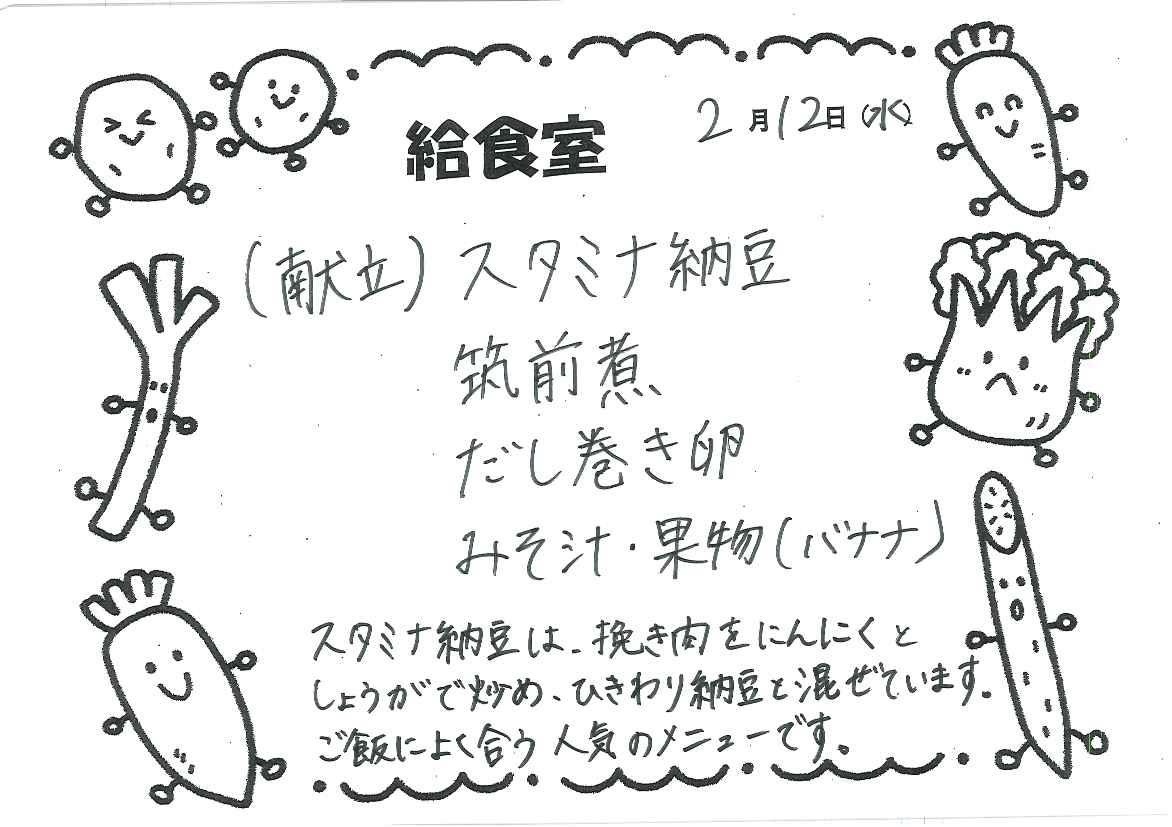 給食室
2月12日(水)
(献立)スタミナ納豆
筑前煮
だし巻き卵
みそ汁・果物(バナナ)
スタミナ納豆は、挽き肉をにんにくと
しょうがで炒め、ひきわり納豆と混ぜています。
ご飯によく合う人気のメニューです。